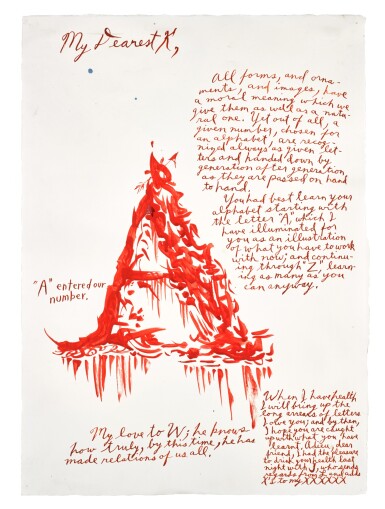 My Dearest X,
All forms, and orna-
ments, and images, have
a moral meaning which we
give them as well as a natu-
ral one. Yet out of all, a
given number, chosen for
an alphabet, are recog-
nized always as given let-
ters and handed down by
generation after generation,
as they are passed on hand
to hand.
You had best learn your
alphabet starting with
the letter "A," which I
have illuminated for
you as an illustration
of what you have to work
with now; and continu-
ing through "Z," learn-
ing as many as you
can anyway.
"A" entered our
number.
My love to W; he knows
how truly, by this time, he has
made relations of us all.
When I have health
I will bring up the
long arrears of letters
I owe you; and by then,
I hope you are caught
up with what you have
learnt. Adieu, dear
friend, I had the pleasure
to drink your health last
night with J, who sends
regards from L and adds
X's to my XXXXXX